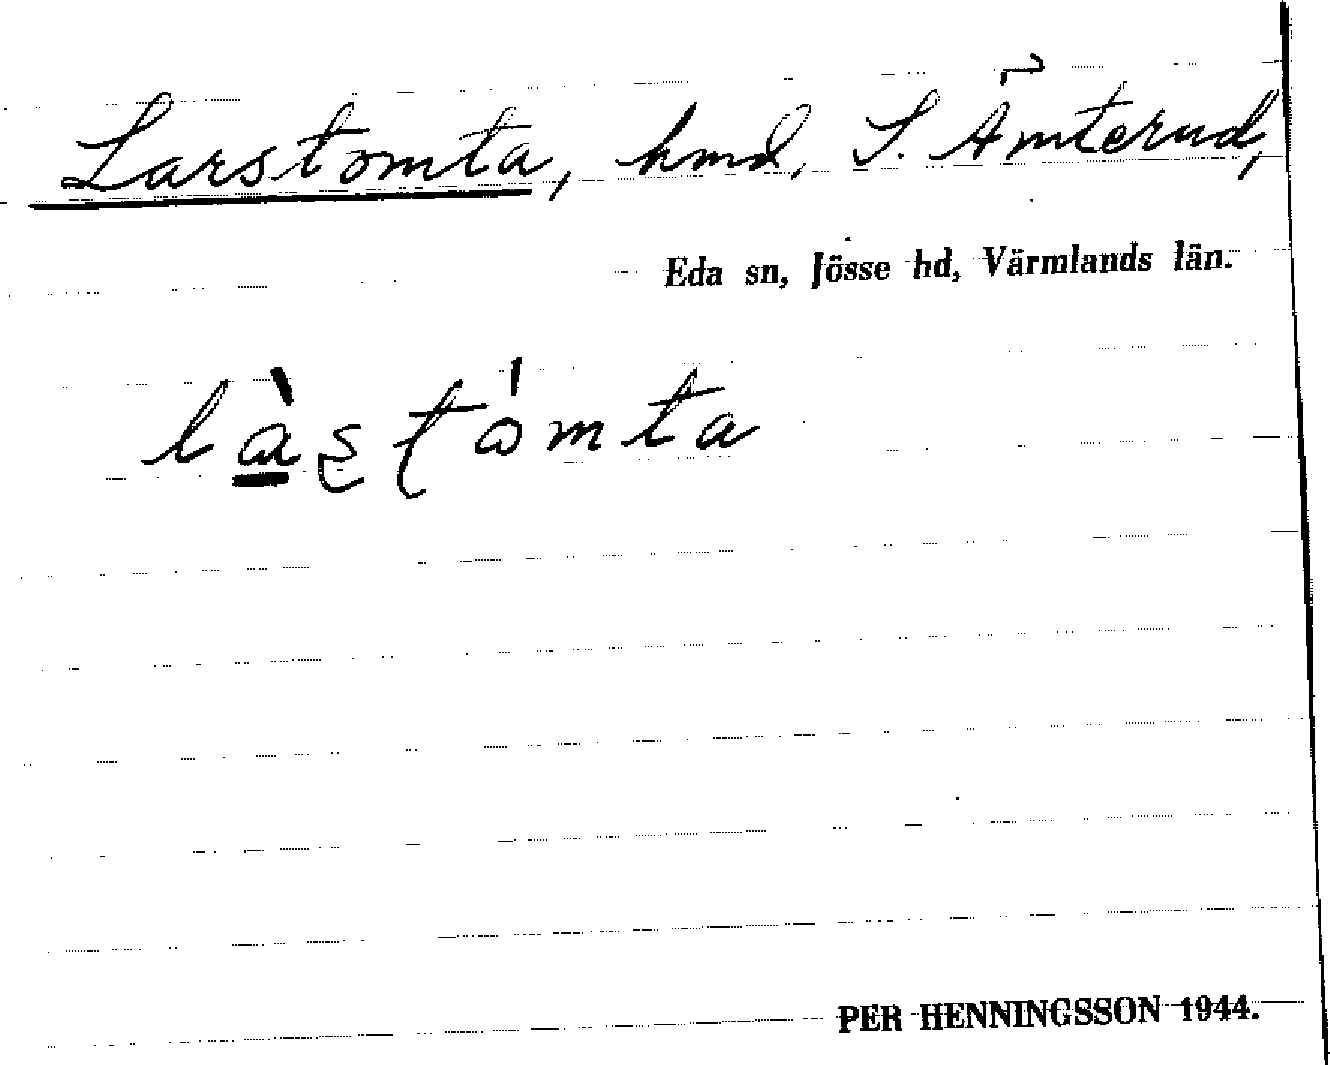 Larstomta, hmd, S. Åmterud,
Eda sn, Jösse hd, Värmlands län.
là̱ʂʈómta
PER HENNINGSSON 1944.